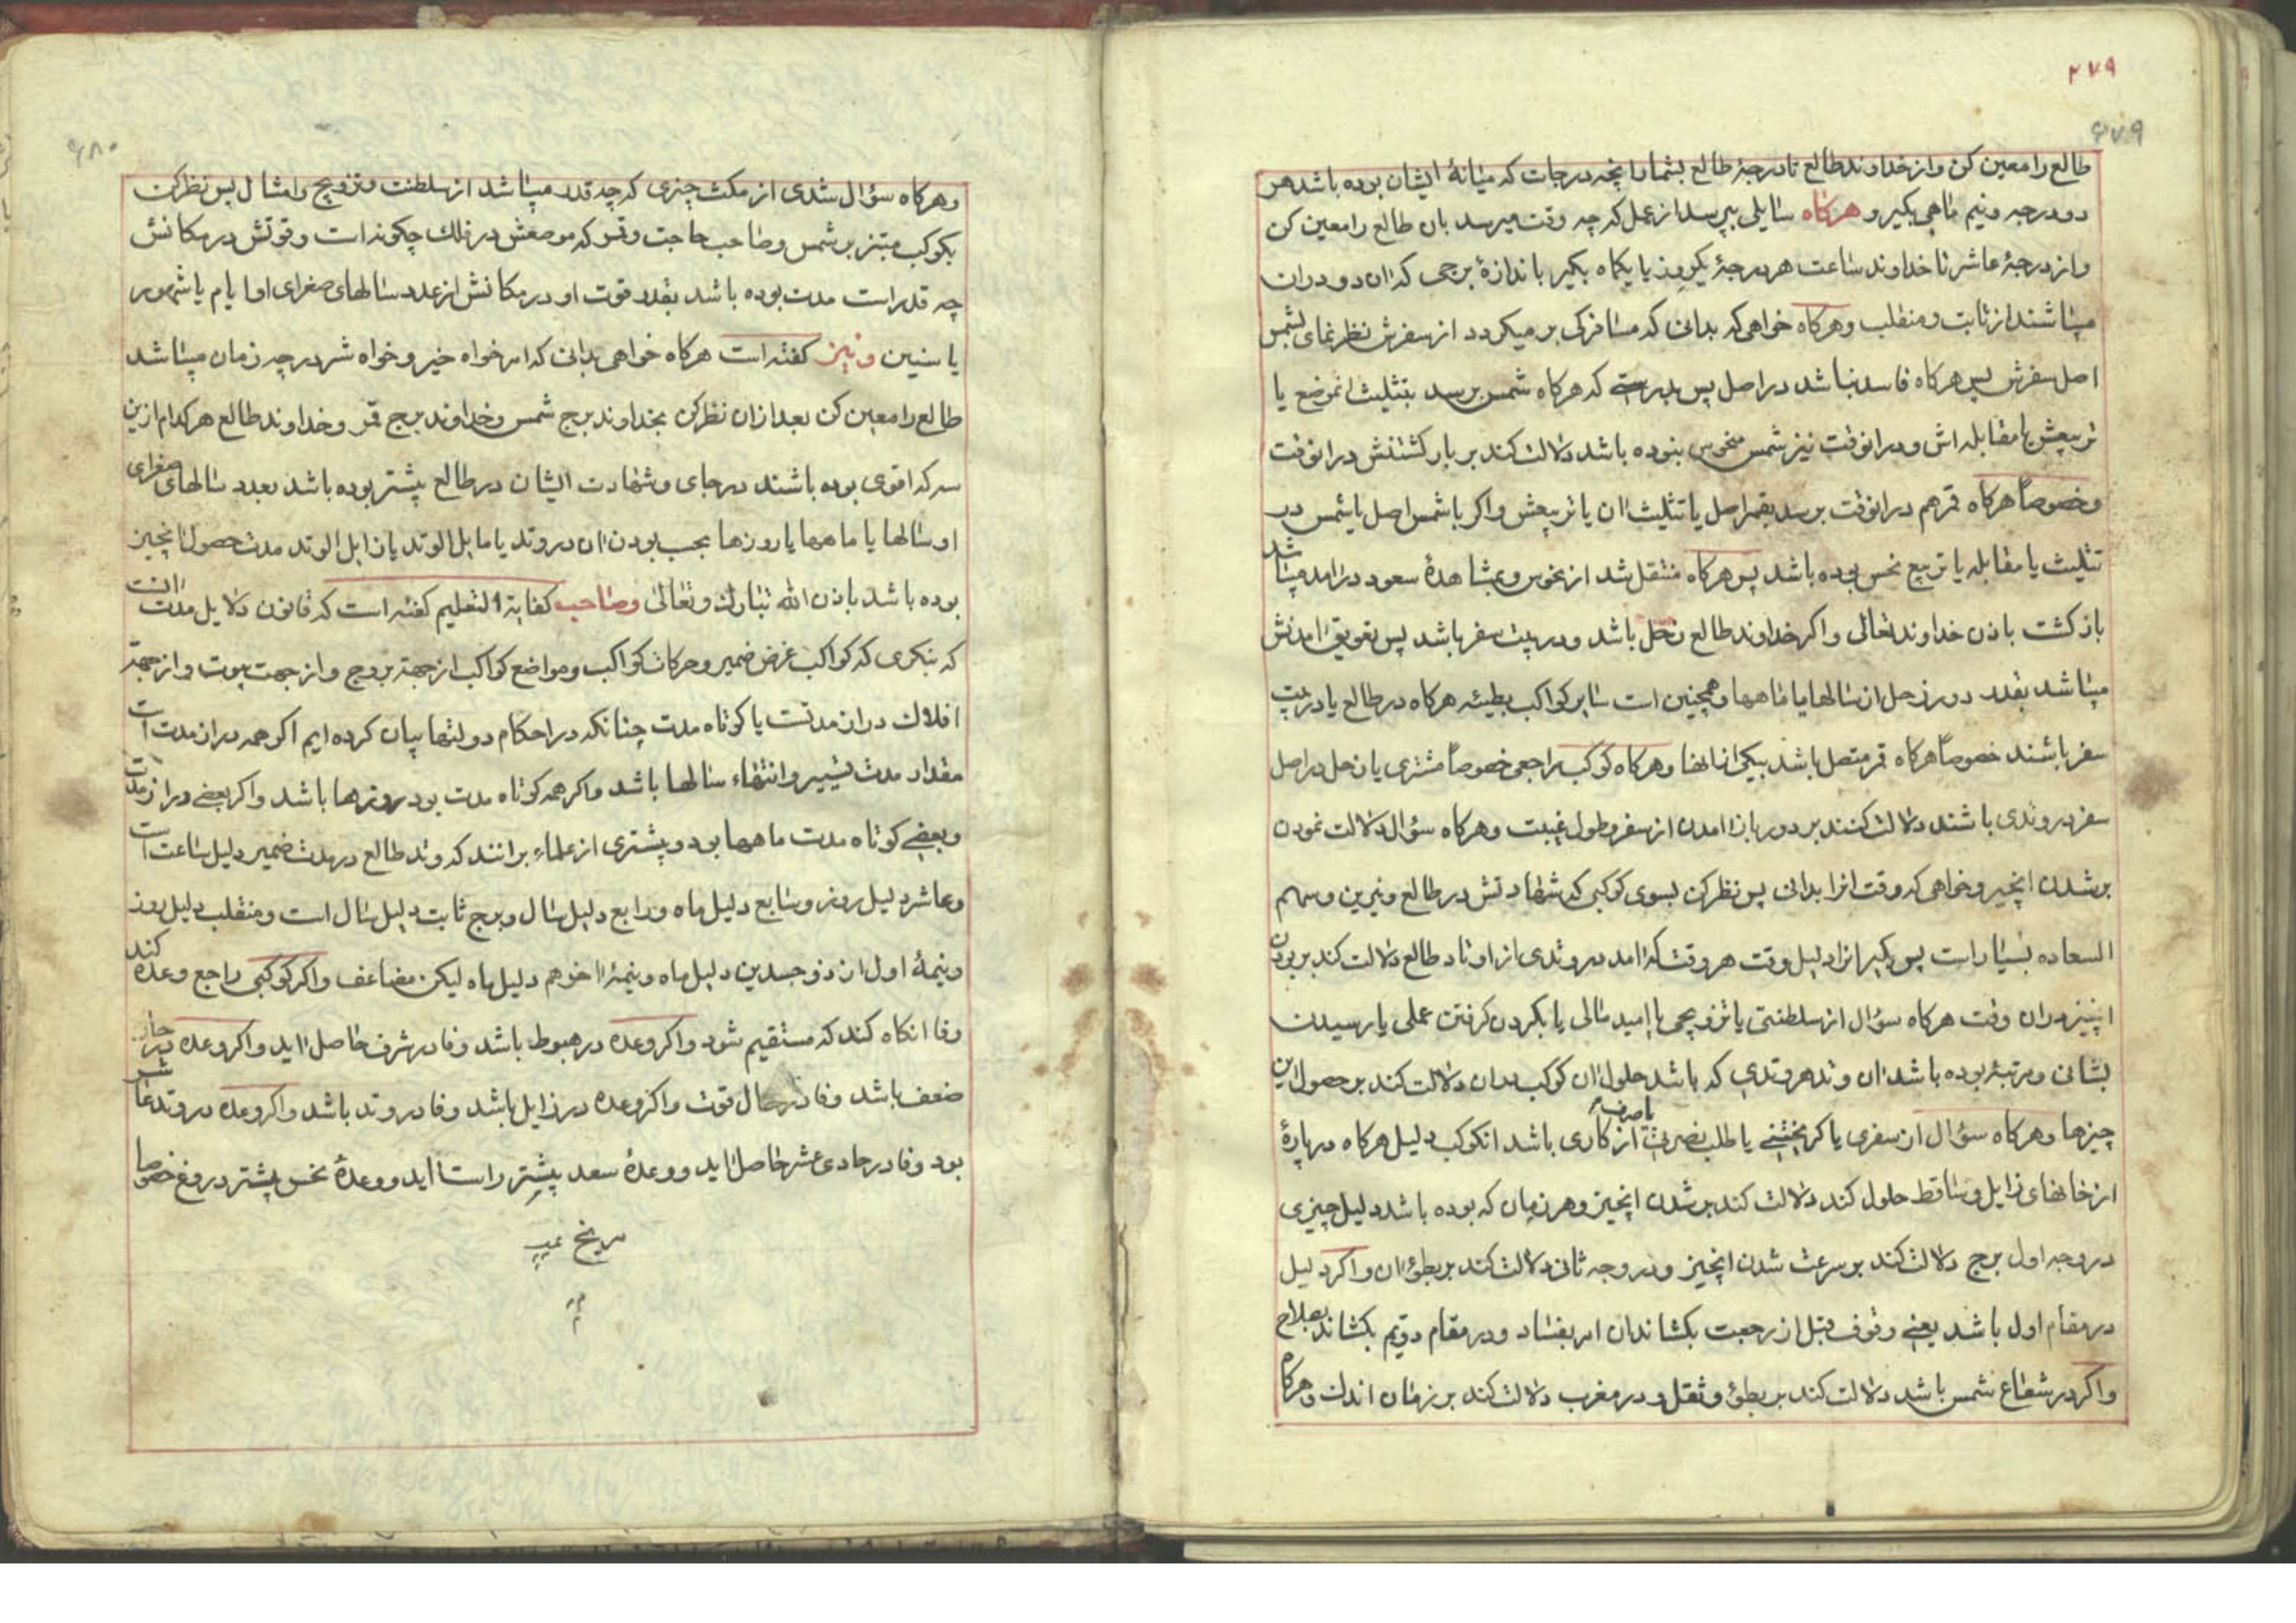 ۲۷۹
۲۷۹
طالع را معین کن و از خداوند طالع تا درجهٔ طالع بشمار انچه درجات که میانهٔ ایشان بوده باشد هر
دو درجه و نیم ماهی بکیر و هرکاه سایلی بپرسد از عمل که چه وقت میرسد بان طالع را معین کن
و از درجهٔ عاشر تا خداوند ساعت هر درجهٔ یکروز یا یکماه بکیر باندازهٔ برجی که ان دو دران
میباشند از ثابت و منقلب و هرکاه خواهی که بدانی که مسافر کی بر میکردد از سفرش نظر نمای بشمس
اصل سفرش پس هرکاه فاسد نباشد در اصل پس بدرستی که هرکاه شمس برسد بتثلیث انموضع یا
تربیعش یا مقابله اش و درانوقت نیز شمس منحوس نبوده باشد دلالت کند بر بازکشتنش درانوقت
و خصوصاً هرکاه قمر هم درانوقت برسد بقمر اصل یا تثلیث ان یا تربیعش و اکر با شمس اصل یا شمس در
تثلیث یا مقابله یا تربیع نحس بوده باشد پس هرکاه منتقل شد از نحوس و بمشاهدهٔ سعود درامد میباشد
بازکشت باذن خداوند تعالی و اکر خداوند طالع زحل باشد و در بیت سفر باشد پس تعویق امدنش
میباشد بقدر دور زحل از سالها یا ماهها و همچنین است سایر کواکب بطیئه هرکاه در طالع یا در بیت
سفر باشند خصوصاً هرکاه قمر متصل باشد بیکی از انها و هرکاه کوکب راجعی خصوصاً مشتری یا زحل در اصل
سفر در وتدی باشند دلالت کنند بر دور باز امدن از سفر و طول غیبت و هرکاه سؤال دلالت نمودن
بر شدن انچیز و خواهی که وقت انرا بدانی پس نظر کن بسوی کوکبی که شهادتش در طالع و نیرین و سهم
السعاده بسیار است پس بکیر انرا دلیل وقت هر وقت که امد در وتدی از اوتاد طالع دلالت کند بر بودن
انچیز دران وقت هرکاه سؤال از سلطنتی یا تزویجی یا امید مالی یا بکردن کرفتن عملی یا رسیدن
بشانی و مرتبهٔ بوده باشد ان وتد هر وتدی که باشد حلول ان کوکب بدان دلالت کند بر حصول این
چیزها و هرکاه سؤال از سفری یا کریختنی یا طلب نصرت یا صرف از کاری باشد انکوکب دلیل هرکاه درپارهٔ
از خانهای زایل و ساقط حلول کند دلالت کند بر شدن انچیز و هر زمان که بوده باشد دلیل چیزی
در وجه اول برج دلالت کند بر سرعت شدن انچیز و در وجه ثانی دلالت کند بر بطؤ ان و اکر دلیل
در مقام اول باشد یعنی وقوف قبل از رجعت بکشاند ان امر بفساد و در مقام دویم بکشاند بصلاح
و اکر در شعاع شمس باشد دلالت کند بر بطؤ و ثقل و در مغرب دلالت کند بر زمان اندک و هرکاه
۲۸۰
و هرکاه سؤال شدی از مکث چیزی که چه قدر میباشد از سلطنت و تزویج و امثال پس نظر کن
بکوکب مبتز بر شمس و صاحب حاجت و قمر که موضعش در فلک چکونه است و قوتش در مکانش
چه قدر است مدت بوده باشد بقدر قوت او در مکانش از عدد سالهای صغرای او ایام یا شهور
یا سنین و نیز کفته است هرکاه خواهی بدانی که امر خواه خیر و خواه شر در چه زمان میباشد
طالع را معین کن بعد از ان نظر کن بخداوند برج شمس و خداوند برج قمر و خداوند طالع هرکدام ازین
سه که اقوی بوده باشند در جای و شهادت ایشان در طالع بیشتر بوده باشد بعدد سالهای صغرای
او سالها یا ماهها یا روزها بحسب بودن ان در وتد یا مایل الوتد یا زایل الوتد مدت حصول انچیز
بوده باشد باذن الله تبارک و تعالی و صاحب کفایة التعلیم کفته است که قانون دلایل مدت انست
که بنکری که کواکب غرض ضمیر و حرکات کواکب و مواضع کواکب از جهة بروج و از جهت بیوت و از جهة
افلاک دراز مدتست یا کوتاه مدت چنانکه در احکام دولتها بیان کرده ایم اکر همه دراز مدت است
مقدار مدت تسییر و انتهاء سالها باشد و اکر همه کوتاه مدت بود روزها باشد و اکر بعضی دراز مدت است
و بعضی کوتاه مدت ماهها بود و بیشتری از علماء برانند که وتد طالع در مدت ضمیر دلیل ساعت است
و عاشر دلیل روز و سابع دلیل ماه و رابع دلیل سال و برج ثابت دلیل سال است و منقلب دلیل روز
و نیمهٔ اول از ذوجسدین دلیل ماه و نیمهٔ اخر هم دلیل ماه لیکن مضاعف و اکر کوکبی راجع وعده کند
وفا انکاه کند که مستقیم شود و اکر وعده در هبوط باشد وفا در شرف حاصل اید و اکر وعده در حال
ضعف باشد وفا در حال قوت و اکر وعده در زایل باشد وفا در وتد باشد و اکر وعده در وتد عاشر
بود وفا در حادی عشر حاصل اید و وعدهٔ سعد بیشتر راست اید و وعدهٔ نحس بیشتر دروغ خصوصا
مریخ